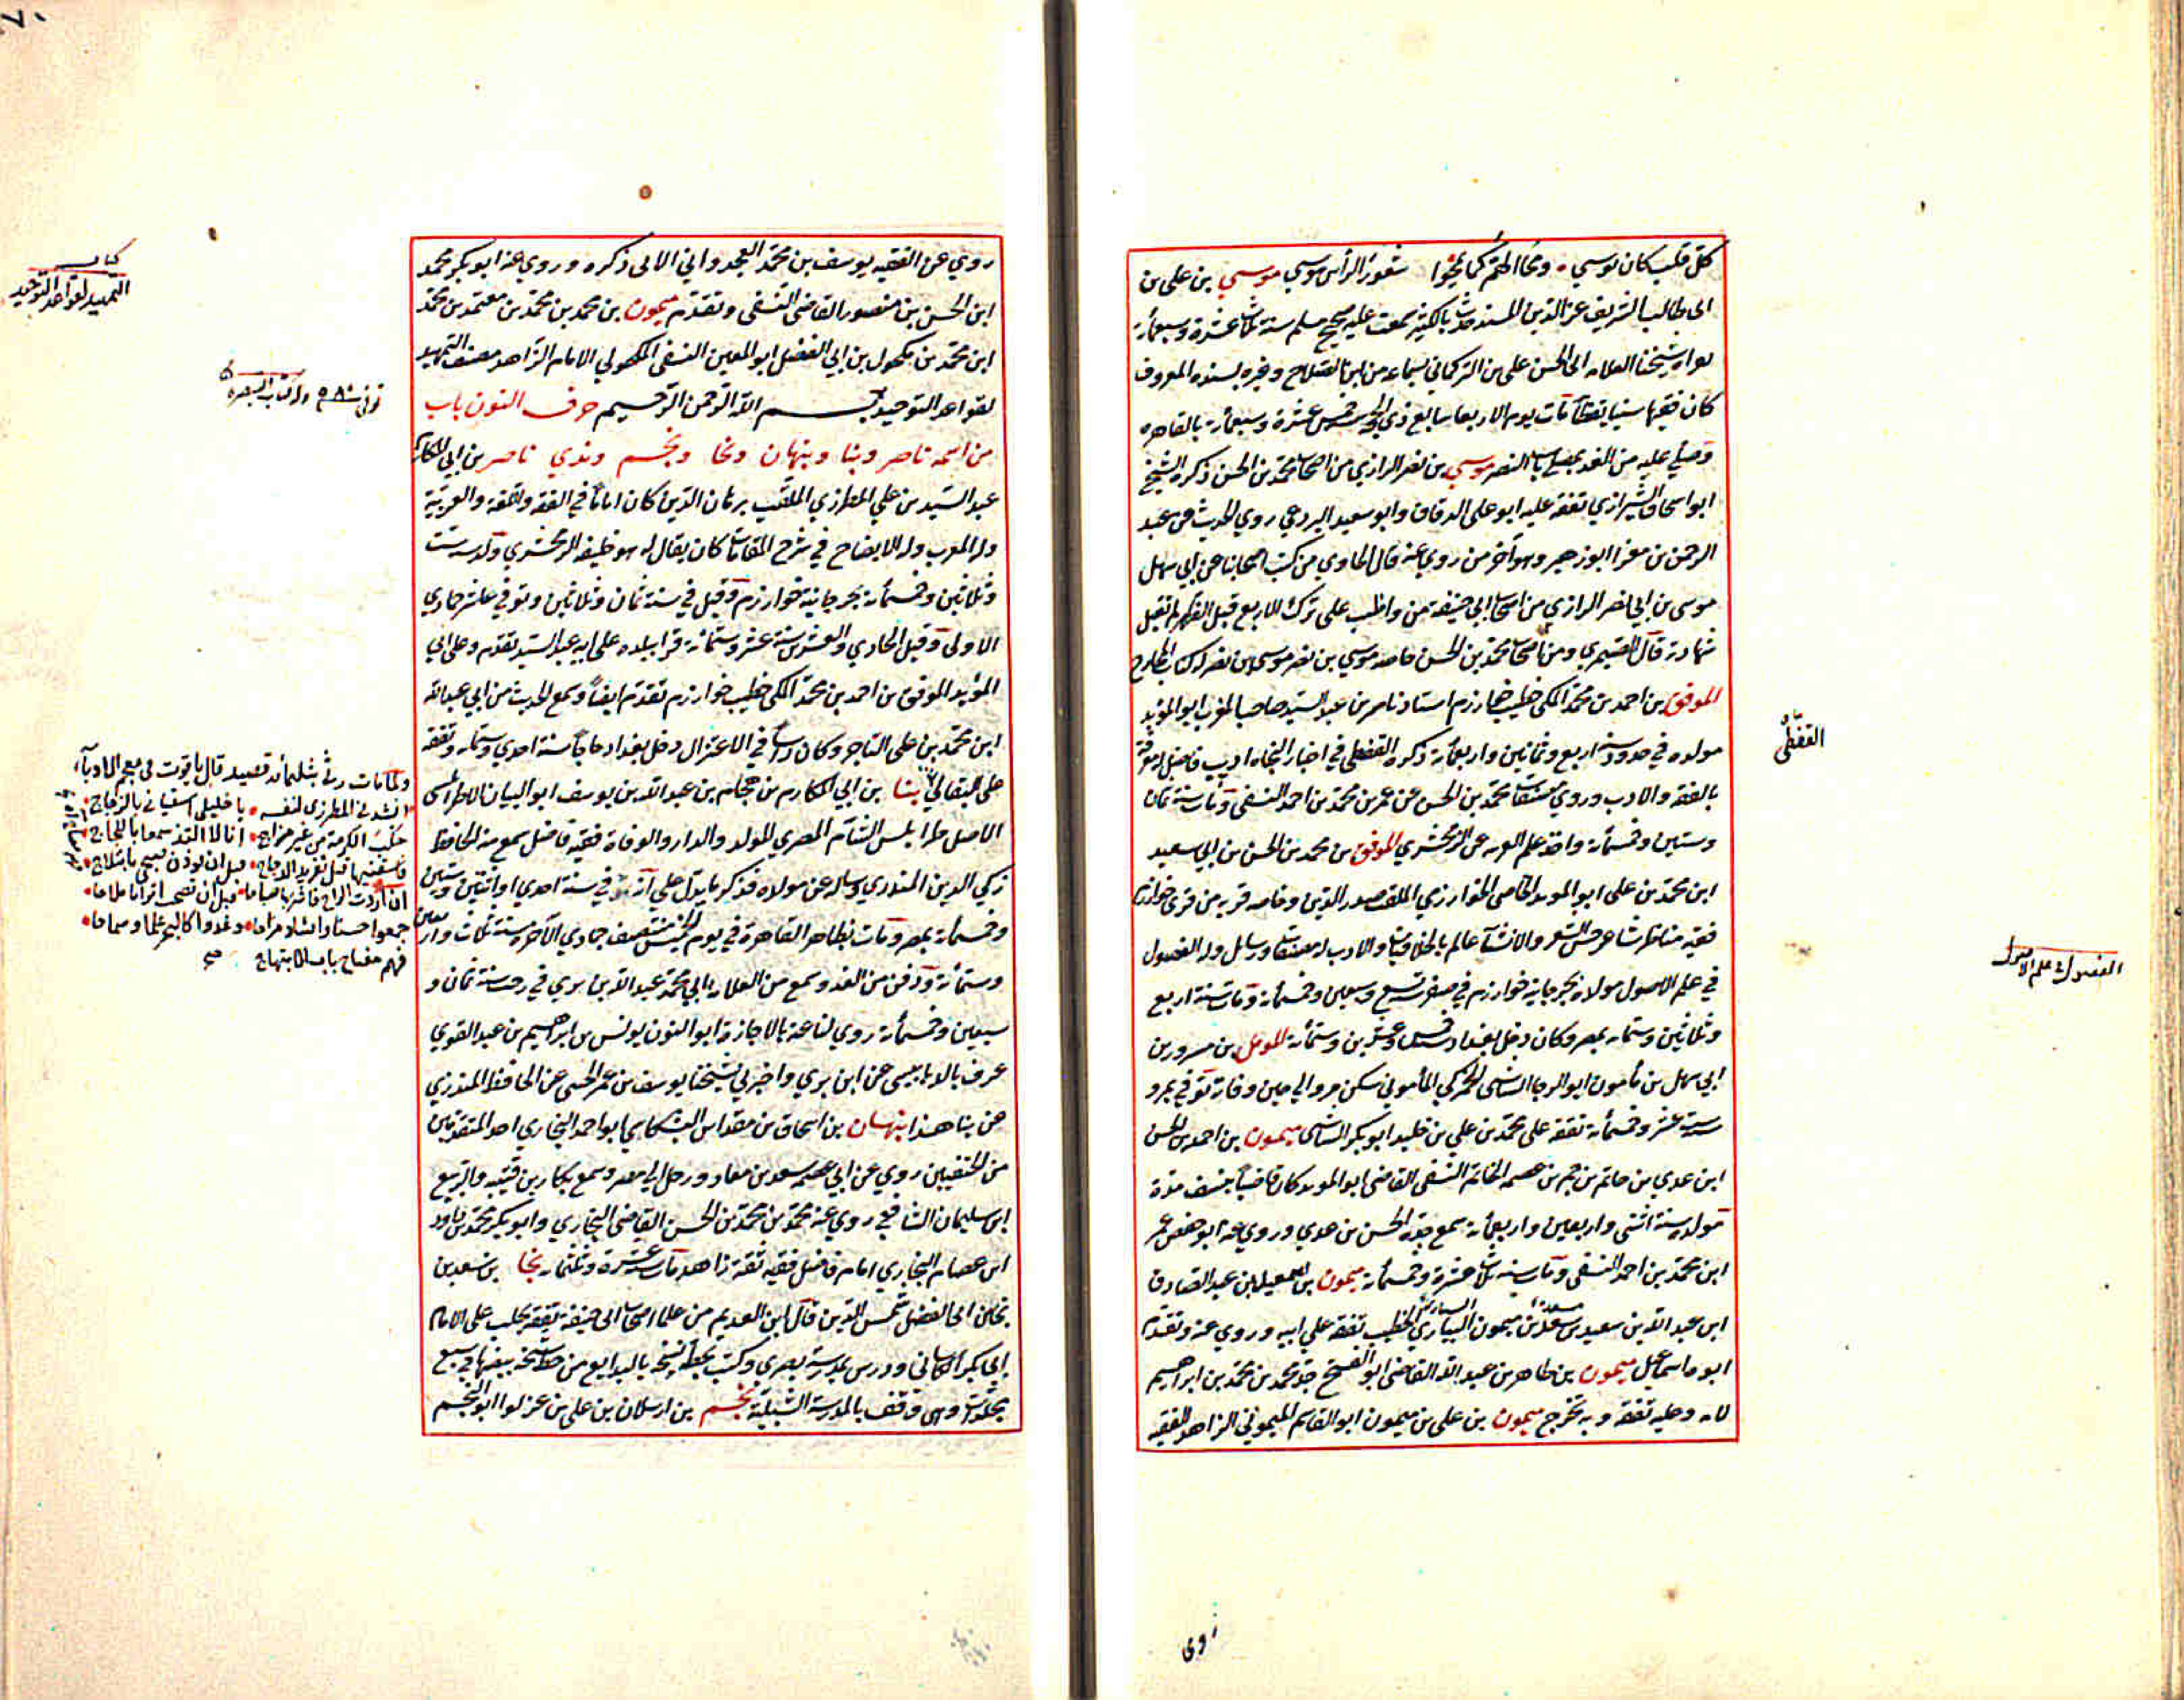 كل قلب كان موسى • ومحا الحتم كما محوا شعور الرأس موسى موسى بن على بن
ابى طالب الشريف عز الدين المسند حدث بالكثير سمعت عليه صحيح مسلم سنة ثلاث عشرة وسبعمأة
شيخنا العلامه ابى الحسن على بن التركمانى بسماعه من ابن الصلاح وغيره بسنده المعروف
كان فقيها سنيا يقظا مات يوم الاربعا سابع ذي الحجه سنة خمس عشرة وسبعمأة بالقاهره
وصلي عليه من الغد بباب النصر موسي بن نصر الرازي من اصحاب محمد بن الحسن ذكره الشيخ
ابو اسحاق الشيرازي تفقه عليه ابو على الدقاق وابو سعيد البردعي روي الحديث عن عبد
الرحمن بن مغرا ابو زهير وهو آخر من روي عنه قال الطحاوي من كتب اصحابنا عن ابي سهل
موسى بن ابي نصر الرازي من اصحاب ابي حنيفة من واظب على ترك الاربع قبل الظهر لم تقبل
شهادته قال الصيمري ومن اصحاب محمد بن الحسن خاصه موسي بن نصر موسي بن نصر له كتاب المخارج
الموفق بن احمد بن محمد المكى خطيب خوارزم استاد ناصر بن عبد السيد صاحب المغرب ابو المؤيد
مولده في حدود سنة اربع وثمانين واربعمأة ذكره القفطى في اخبار النحاه اديب فاضل له معرفة
بالفقه والادب وروي مصنفات محمد بن الحسن عن عمر بن محمد بن احمد النسفى ومات سنة ثمان
وستين وخمسمأة واخذ علم العربيه عن الزمخشري الموفق بن محمد بن الحسن بن ابي سعيد
ابن محمد بن على ابو المويد الخاصى الخوارزمي الملقب صدر الدين وخاصه قريه من قرى خوارزم
فقيه مناظر شاعر حسن الشعر والانشآ عالم بالخلافيات والادب له مصنفات ورسايل وله الفصول
في علم الاصول مولده بجرجانية خوارزم في صفر سنة تسع وسبعين وخمسمأة ومات سنة اربع
وثلاثين وستمأة بمصر وكان دخل بغداد سنة خمس وعشرين وستمأة المومل بن مسرور بن
ابي سهل بن مأمون ابو الرجا الشاشى الخمركي المأموني سكن مرو الى حين وفاته توفي بمرو
سنة ست عشرة وخمسمأة تفقه على محمد بن علي بن خليد ابو بكر الشاشى ميمون بن احمد بن الحسن
ابن عدي بن حاتم بن حم بن عصمه الخاتم النسفى القاضى ابو المويد كان قاضيا بنسف مدة
مولده سنة اثنتى واربعين واربعمأة سمع جده الحسن بن عدي وروي عنه ابو حفص عمر
ابن محمد بن احمد النسفى ومات سنة ثلاث عشرة وخمسمأة ميمون بن اسمعيل بن عبد الصادق
ابن عبد الله بن سعيد بن مسعدة بن ميمون البياري الخطيب تفقه علي ابيه وروي عنه وتقدم
ابوه اسماعيل ميمون بن طاهر بن عبد الله القاضى ابو الفتح جد محمد بن محمد بن ابراهيم
لامه وعليه تفقه وبه تخرج ميمون بن على بن ميمون ابو القاسم الميموني الزاهد الفقيه
القفطى
الفصول فى علم الاصول
روى
روي عن الفقيه يوسف بن محمد النجدوانى الاتى ذكره وروي عنه ابو بكر محمد
ابن الحسن بن منصور القاضى النسفى وتقدم ميمون بن محمد بن محمد بن معتمد بن محمد
ابن محمد بن مكحول بن ابي الفضل ابو المعين النسفى المكحولي الامام الزاهد مصنف التمهيد
لقواعد التوحيد بسم الله الرحمن الرحيم حرف النون باب
من اسمه ناصر وبنا ونبهان ونجا ونجم وندي ناصر بن ابي المكارم
عبد السيد بن علي المطرزي الملقب برهان الدين كان اماما في الفقه واللغه والعربية
وله المغرب وله الايضاح في شرح المقامات كان يقال له هو خليفة الزمخشري ولد سنة ست
وثلاثين وخمسمأة بجرجانية خوارزم وقيل في سنة ثمان وثلاثين وتوفي عاشر جمادي
الاولى وقيل الحادي والعشرين سنة عشر وستمأة قرا ببلده على ابيه عبد السيد تقدم وعلى ابي
المؤيد الموفق بن احمد بن محمد المكى خطيب خوارزم تقدم ايضا وسمع الحديث من ابي عبد الله
ابن محمد بن على التاجر وكان رأسا في الاعتزال دخل بغداد حاجا سنة احدي وستمأة وتفقه
على البقالي بنا بن ابي المكارم بن حجام بن عبد الله بن يوسف ابو البيان الاطرابلسى
الاصل طرابلس الشآم المصري المولد والدار والوفاة فقيه فاضل سمع منه الحافظ
زكي الدين المنذري وساله عن مولده فذكر ما يدل على انه في سنة احدي او اثنتين وستين
وخمسمأة بمصر ومات بظاهر القاهرة في يوم الخميس منتصف جمادي الآخرة سنة ثلاث واربعين
وستمأة ودفن من الغد وسمع من العلامه ابي محمد عبد الله بن بري في رجب سنة ثمان و
سبعين وخمسمأة روي لنا عنه بالاجازة ابو النون يونس بن ابراهيم بن عبد القوي
عرف بالدبابيسى عن ابن بري واخبرني شيخنا يوسف بن عمر الختنى عن الحافظ المنذري
عن بنا هذا نبهان بن اسحاق بن مقداس البمكاي ابو احمد البخاري احد المتقدمين
من الحنفيين روي عن ابي عصمه سعد بن معاد ورحل الى مصر وسمع بكار بن قتيبه والربيع
ابن سليمان الشافعي روي عنه محمد بن محمد بن الحسن القاضى البخاري وابو بكر محمد بن داود
ابن عصام البخاري امام فاضل فقيه ثقة زاهد مات سنة عشرة وثلثمأة نجا بن سعد بن
نجا بن ابي الفضل شمس الدين قال ابن العديم من علما اصحاب ابى حنيفة تفقه بحلب على الامام
ابي بكر الكاسانى ودرس بمدرسة بصرى وكتب بخطه نسخه بالبدايع من خط مصنفها في سبع
مجلدات وهى وقف بالمدرسة الشبلية نجم بن ارسلان بن على بن عز لوا ابو النجم
كتاب
التمهيد لقواعد التوحيد
توفى سنة ٥٠٨ وله كتاب التبصره
ولما مات رثى بثلثمأة قصيد قال ياقوت فى معجم الادباء
انشدنى المطرزى لنفسه • يا خليلى اسقيانى بالزجاج •
حلب الكرمة من غير مزاج • انا لا التذ سمعا باللجاج •
فاسقنيها قبل تغريد الدجاج • قبل ان يوذن صبحى بابتلاج •
ان اردت الراح فاشربها صباحا • قبل ان تصحب اترابا ملاحا •
جمعوا حسنا وانسا ومزاحا • وغدوا كالبحر علما وسماحا •
فهم مفتاح باب الابتهاج صح
٧٠